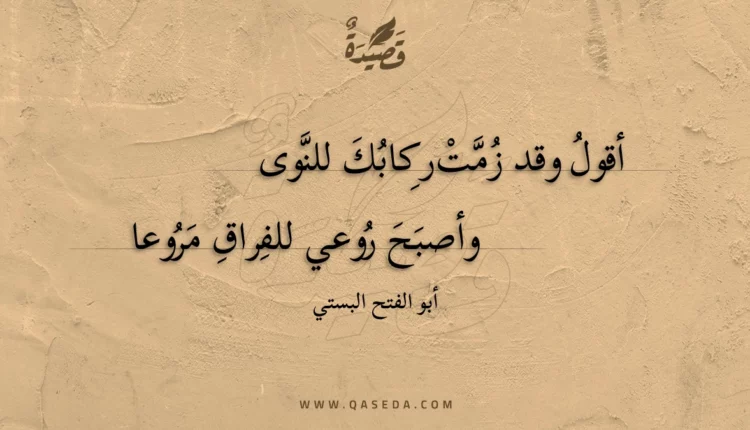 قَصِيدَةٌ
أقولُ وقد زُمَّتْ رِكابُكَ للنَّوى
وأصبَحَ رُوعي للفِراقِ مَرُوعا
أبو الفتح البستي
WWW.QASEDA.COM